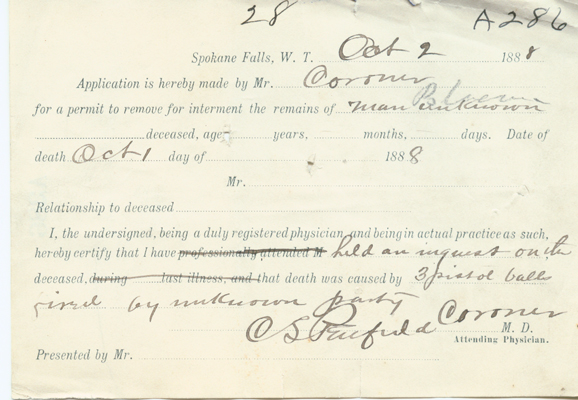 28 A286
Spokane Falls, W. T. Oct 2 1888
Application is hereby made by Mr. Coroner
for a permit to remove for interment the remains of man unknown
deceased, age years, months, days. Date of
death Oct 1 day of 1888
Mr.
Relationship to deceased
I, the undersigned, being a duly registered physician and being in actual practice as such,
hereby certify that I have professionally attended M held an inquest on the
deceased, during last illness, and that death was caused by 3 pistol balls
fired by unknown party
C S Penfield Coroner
M. D.
Attending Physician.
Presented by Mr.